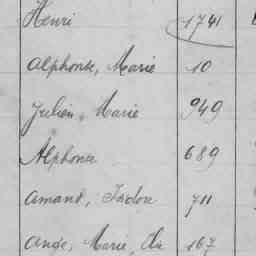 Henri 1741
Alphonse, Marie 10
Julien, Marie 949
Alphonse 689
Amand, Isidore 711
Ange, Marie 167